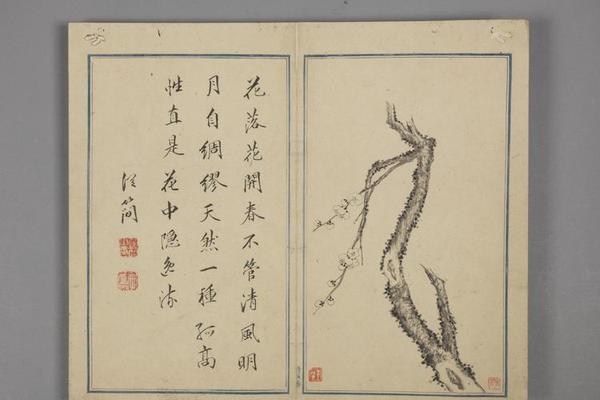 花落花開春不管清風明
月自綢繆天然一種孤高
性直是花中隱逸流
簡